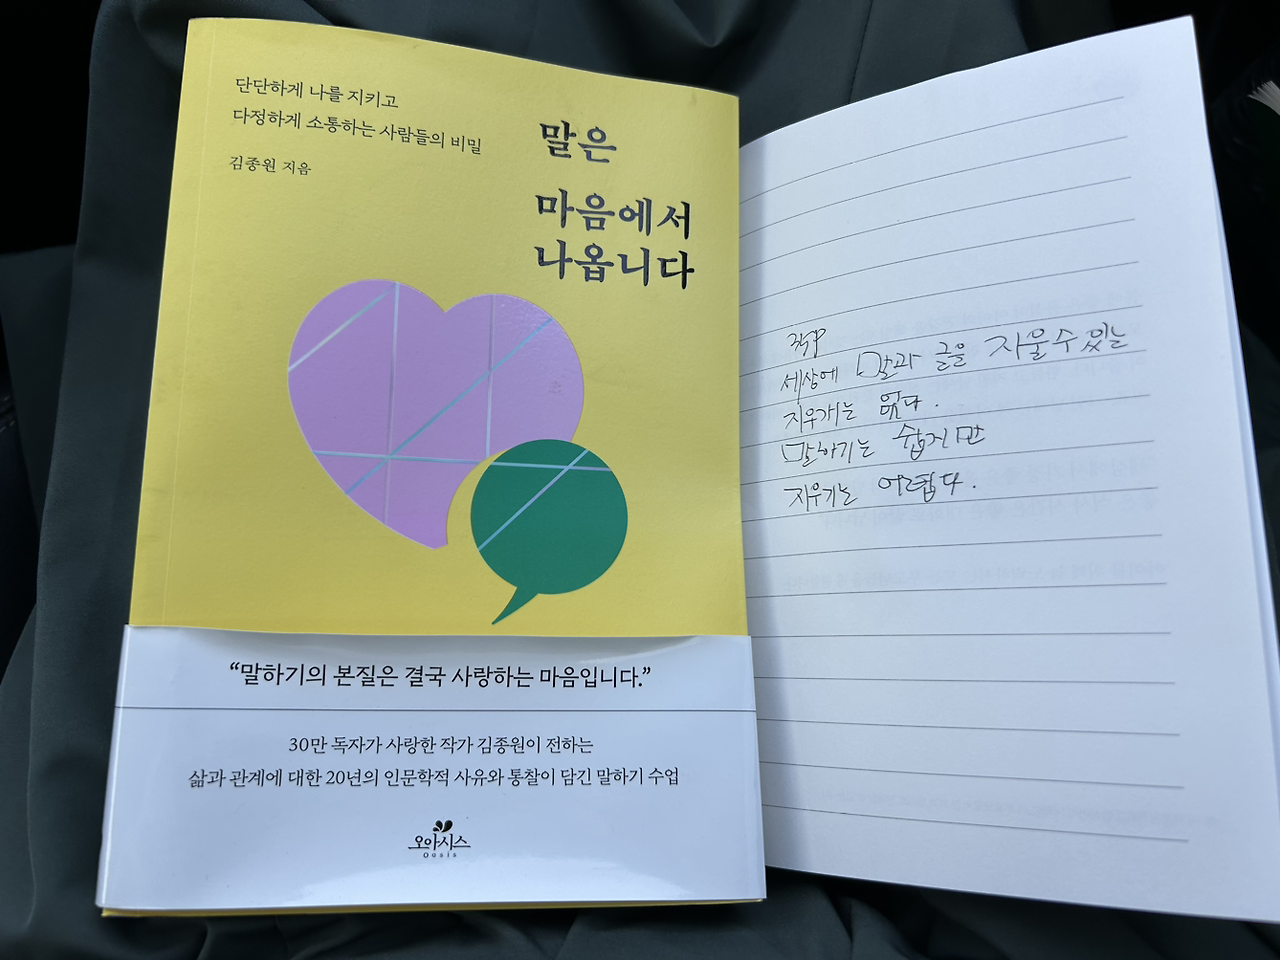 단단하게 나를 지키고
다정하게 소통하는 사람들의 비밀
김종원 지음
말은
마음에서
나옵니다
“말하기의 본질은 결국 사랑하는 마음입니다.”
30만 독자가 사랑한 작가 김종원이 전하는
삶과 관계에 대한 20년의 인문학적 사유와 통찰이 담긴 말하기 수업
오아시스
Oasis
35P
세상에 말과 글을 지울 수 있는
지우개는 없다.
말하기는 쉽게만
지우기는 어렵다.